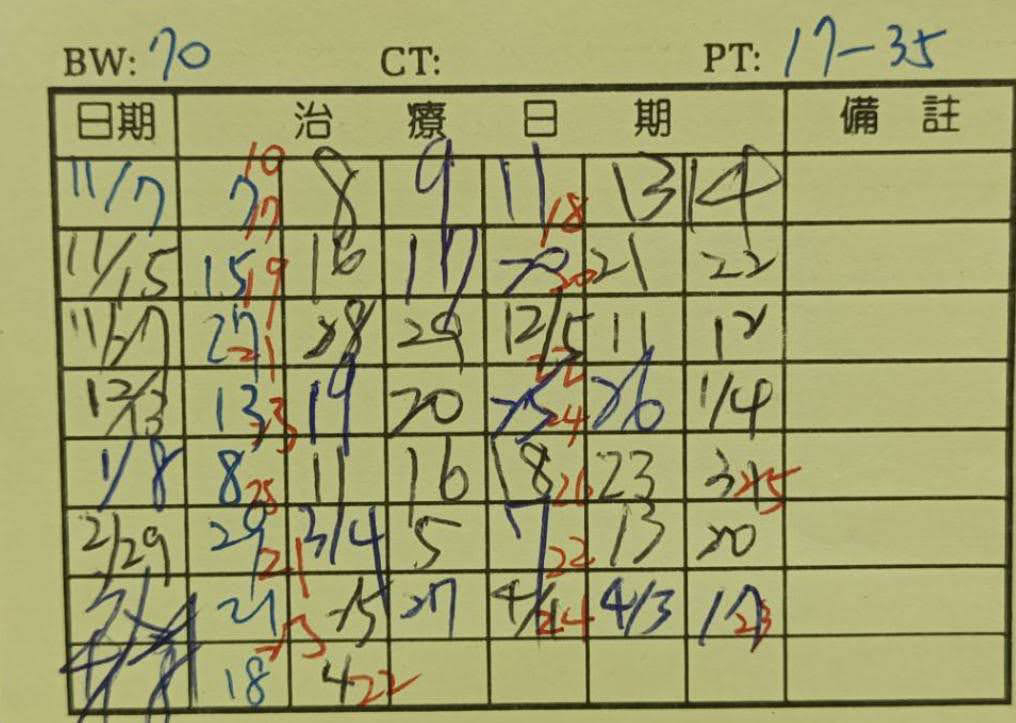 BW: 70 CT: PT: 17-35
日期 治療日期 備註
11/7 7 10 17 8 9 11 18 13 14
11/15 15 19 16 17 20 20 21 22
11/27 27 21 28 29 12/5 22 11 12
12/13 13 23 19 20 25 24 26 1/4
1/8 8 25 11 16 18 26 23 25
2/29 29 21 3/4 5 7 22 13 20
21 23 25 27 24 4/3 17 23
18 4 22